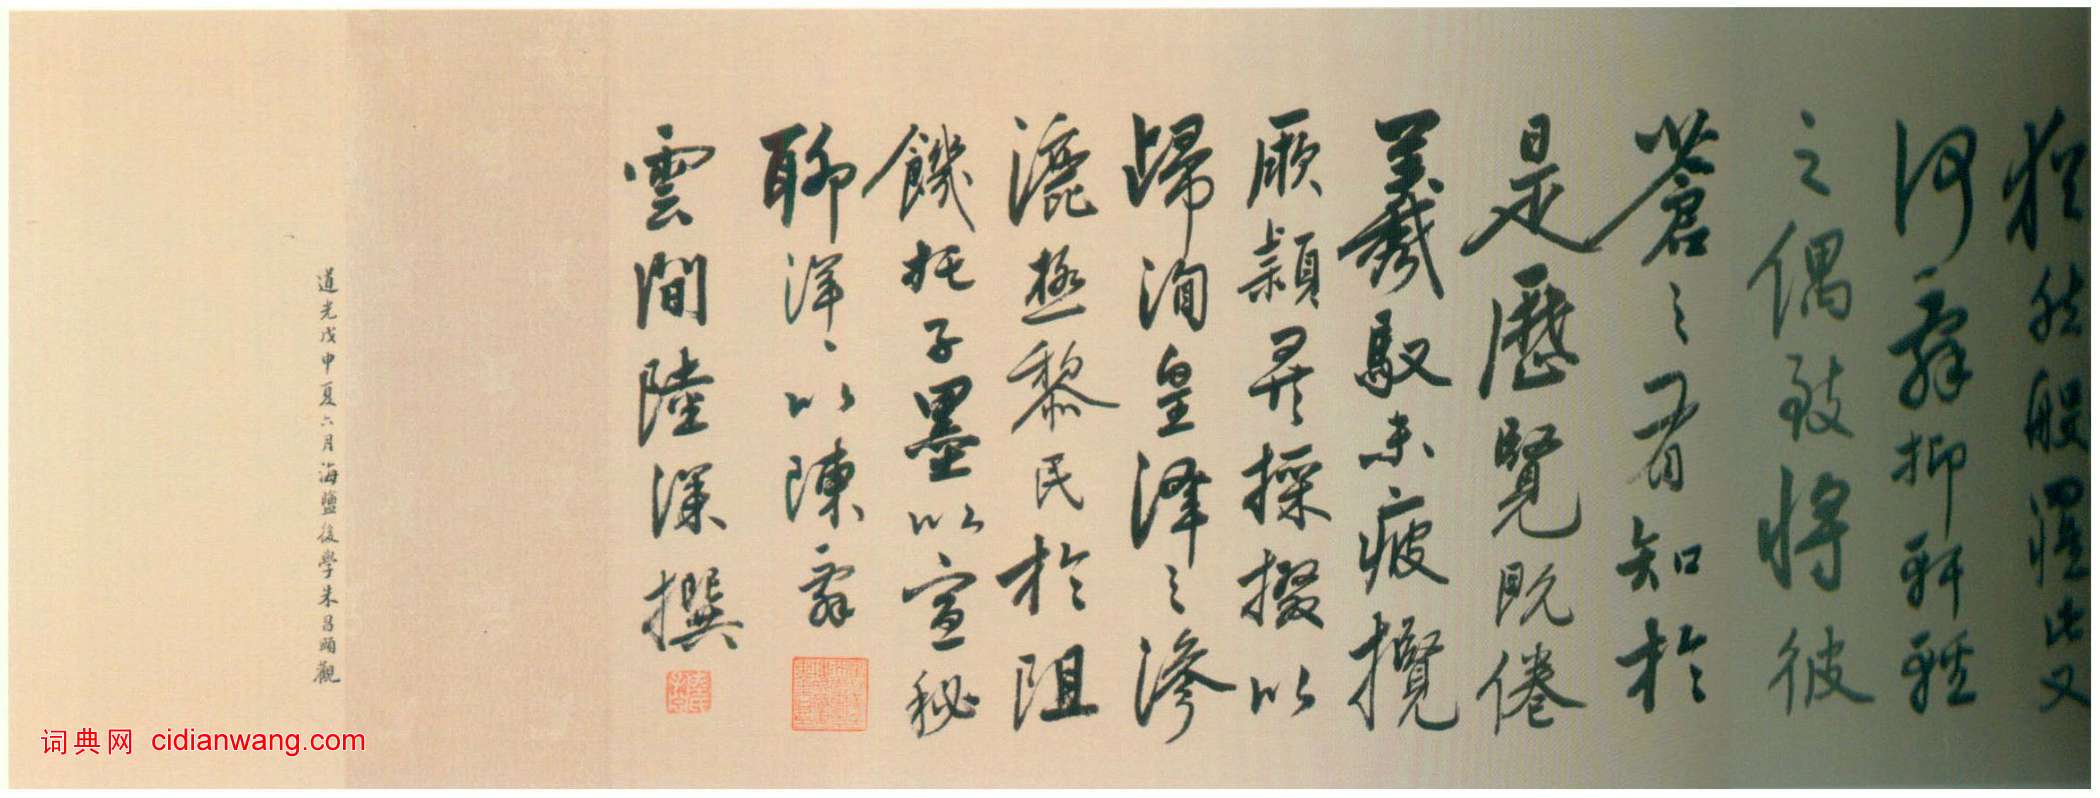 猶然般此又
何辭抑軒輊
之偶致將彼
蒼〻有知於
是歷覽既倦
羲馭未疲攬
厥穎异採掇以
歸洵皇澤之滲
漉拯黎民於阻
饑托子墨以宣秘
聊洋〻以陳辭
雲間陸深撰
道光戊申夏六月海鹽後學朱昌頤觀
词典网 cidianwang.com